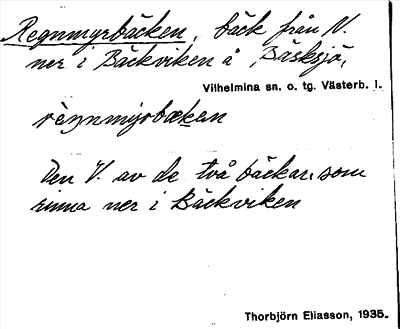 Regnmyrbäcken, bäck från N.
ner i Bäckviken å Bäsksjö,
Vilhelmina sn. o. tg. Västerb. l.
rèŋnmýrbækan
Den V. av de två bäckar, som
rinna ner i Bäckviken
Thorbjörn Eliasson, 1935.